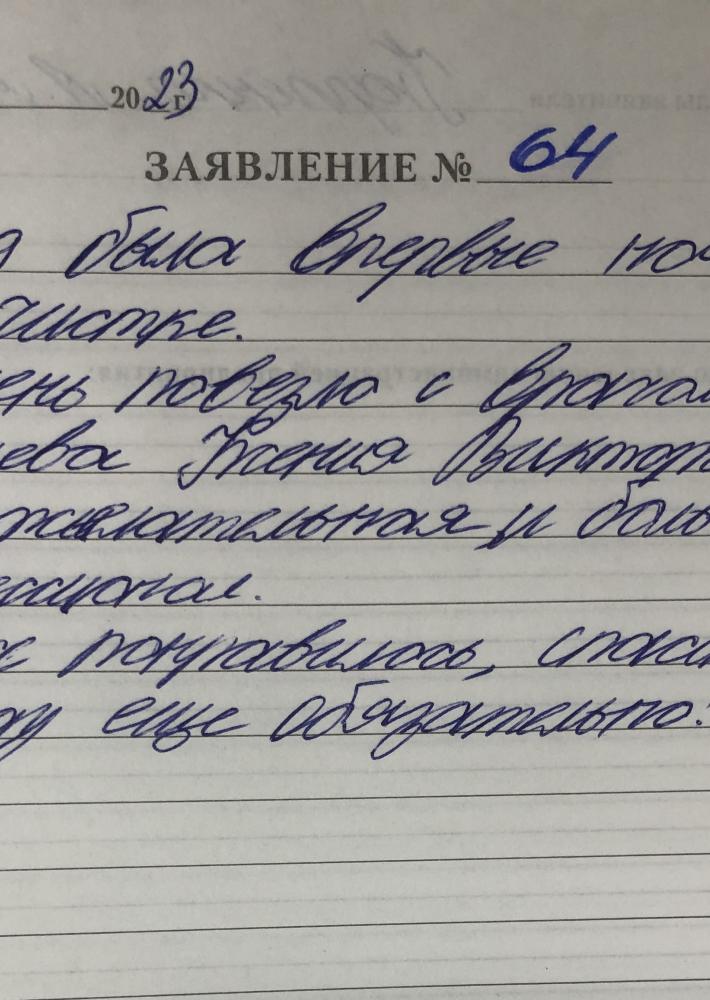 2023 г.
ЗАЯВЛЕНИЕ № 64
была впервые на
чистке.
ень повезло с врачом
ева Ксения Виктор
желательная и боль
ессионал.
понравилось, спаси
ду еще обязательно.